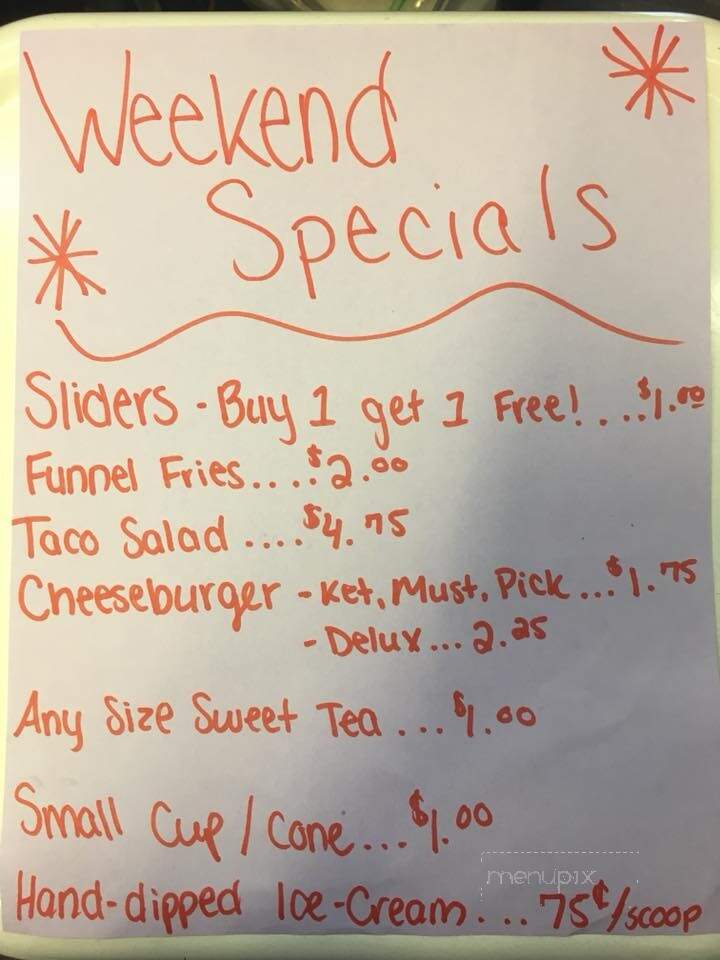 Weekend
Specials
Sliders - Buy 1 get 1 Free!....$1.00
Funnel Fries....$2.00
Taco Salad ....$4.75
Cheeseburger - Ket, Must, Pick ...$1.75
- Delux... 2.25
Any Size Sweet Tea ...$1.00
Small Cup / Cone...$1.00
menupix
Hand-dipped Ice-Cream... 75¢/scoop